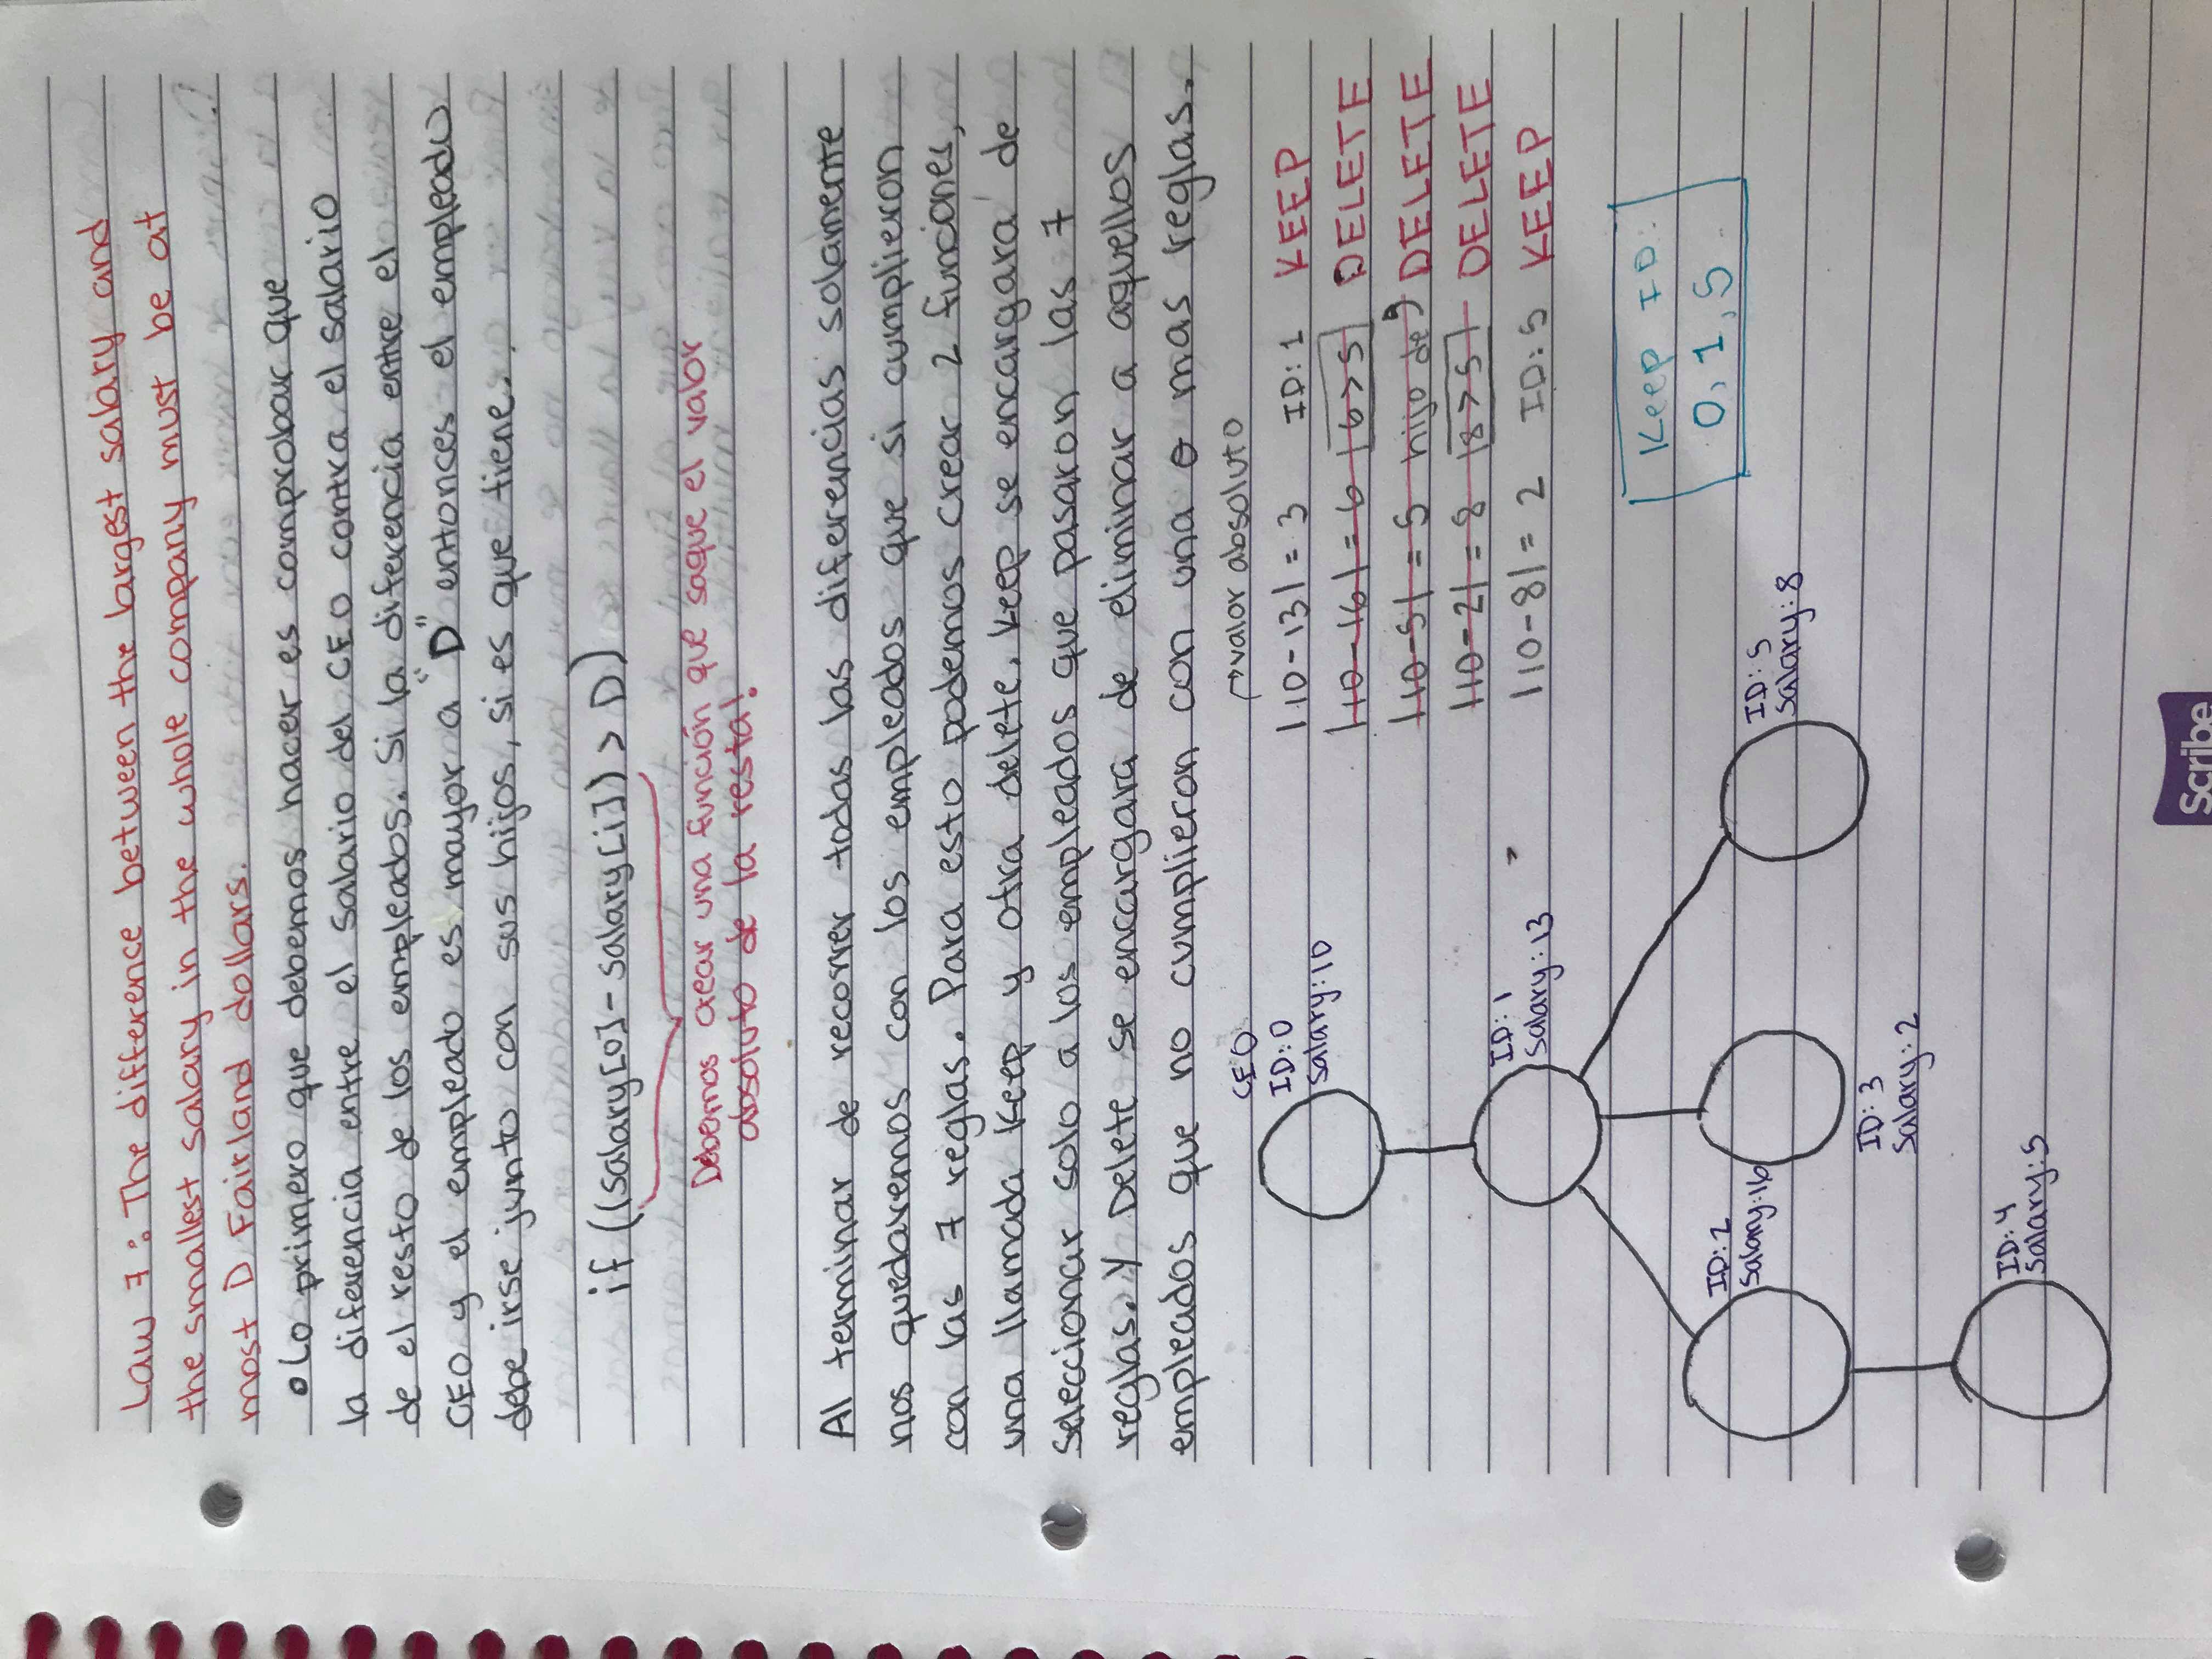 Law 7: The difference between the largest salary and
the smallest salary in the whole company must be at
most D Fairland dollars.
• Lo primero que debemos hacer es comprobar que
la diferencia entre el salario del CEO contra el salario
de el resto de los empleados. Si la diferencia entre el
CEO y el empleado es mayor a "D" entonces el empleado
debe irse junto con sus hijos, si es que tiene.
if (|salary[0]-salary[i]|) > D)
Debemos crear una función que saque el valor
absoluto de la resta!
Al terminar de recorrer todas las diferencias solamente
nos quedaremos con los empleados que si cumplieron
con las 7 reglas. Para esto podemos crear 2 funciones,
una llamada keep y otra delete. Keep se encargará de
seleccionar solo a los empleados que pasaron las 7
reglas. Y Delete se encargara de eliminar a aquellos
empleados que no cumplieron con una o mas reglas.
→valor absoluto
|10-13| = 3 ID: 1 KEEP
|10-16| = 6 6>5 DELETE
|10-5| = 5 hijo de DELETE
|10-2| = 8 8>5 DELETE
|10-8| = 2 ID: 5 KEEP
Keep ID:
0, 1, 5
CEO
ID: 0
Salary: 10
ID: 1
Salary: 13
ID: 2
Salary: 16
ID: 3
Salary: 2
ID: 5
Salary: 8
ID: 4
Salary: 5
Scribe